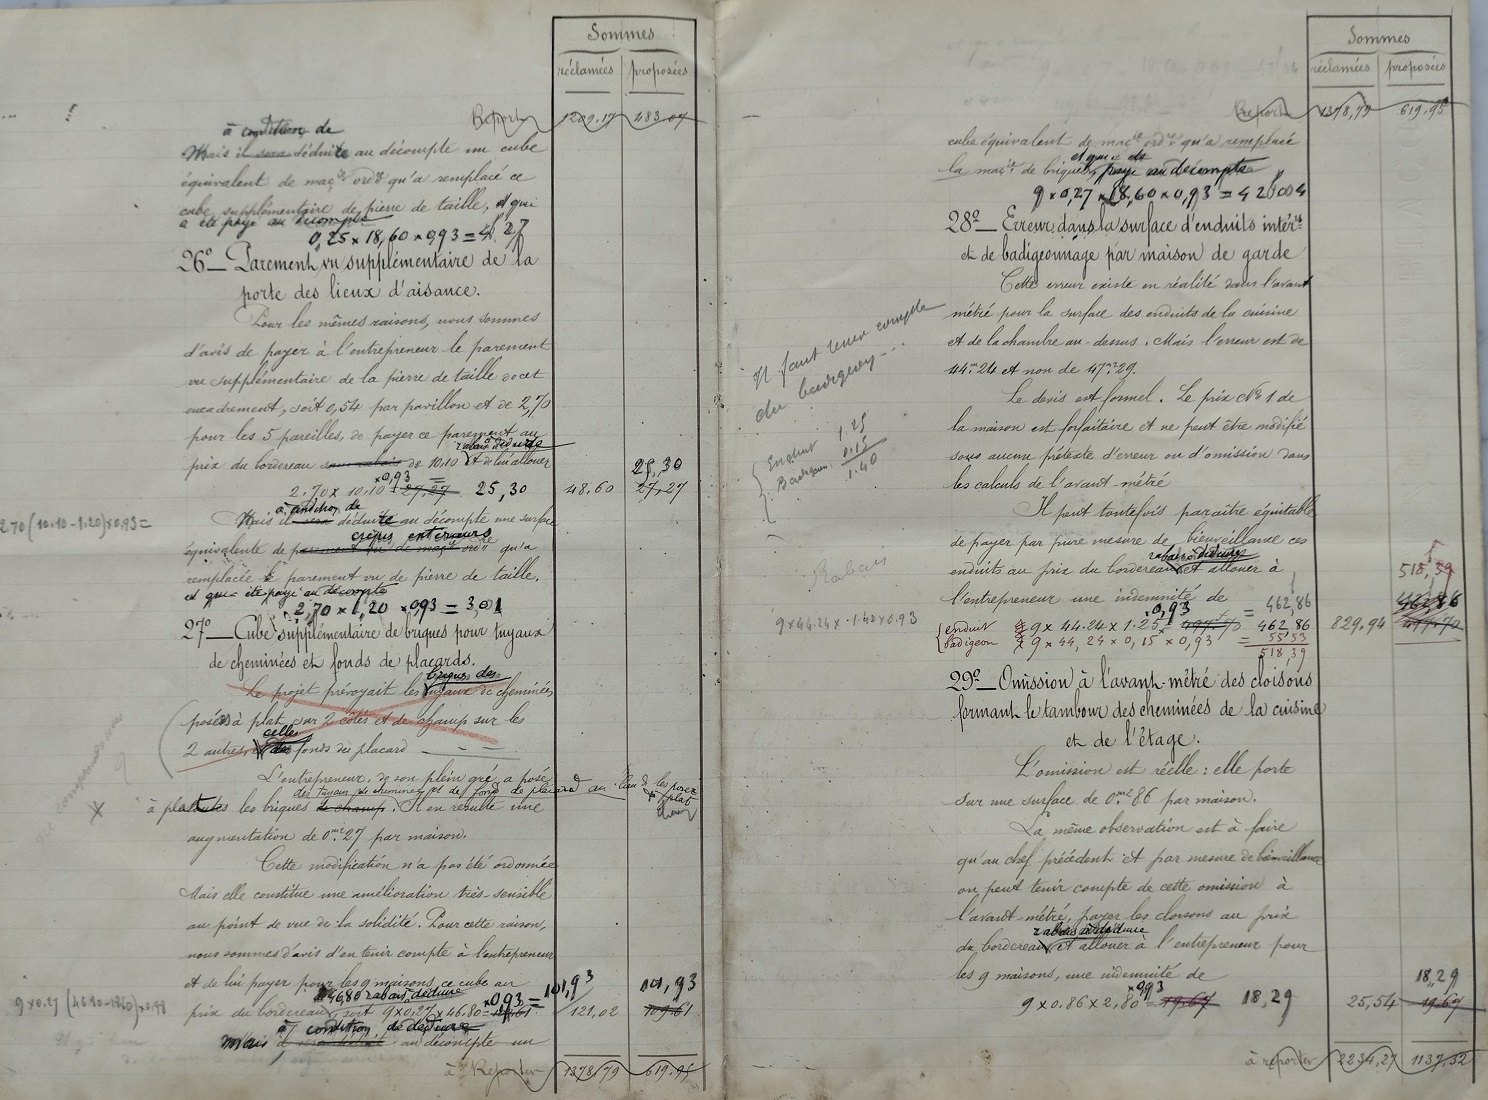 Sommes
réclamées proposées
Report 1209.17 483.07
à condition de
Mais il sera déduite au décompte un cube
équivalent de maç.ie ord.re qu'a remplacé ce
cube supplémentaire de pierre de taille, et qui
a été payé au décompte
0,25 x 18,60 x 0,93 = 4,27
26°_ Parement vu supplémentaire de la
porte des lieux d'aisance.
Pour les mêmes raisons, nous sommes
d'avis de payer à l'entrepreneur le parement
vu supplémentaire de la pierre de taille de cet
encadrement, soit 0,54 par pavillon et de 2,70
pour les 5 pareilles, de payer ce parement au
rabais déduit
prix du bordereau sans rabais de 10.10 et de lui allouer
x 0,93 =
2.70 x 10.10 = 27,27 25,30 48.60 25,30 27,27
2.70 (10.10 - 1.20) x 0.93 =
à condition de
Mais il sera déduite au décompte une surface
crépis extérieurs
équivalente de parement vu de maç.ie ord.re qu'a
remplacée le parement vu de pierre de taille.
et qui a été payé au décompte
2,70 x 1,20 x 0,93 = 3,01
27°_ Cube supplémentaire de briques pour tuyaux
de cheminées et fonds de placards.
briques des
Le projet prévoyait les tuyaux de cheminées
posées à plat sur 2 côtés et de champ sur les
celles
2 autres, et des fonds des placard _ _ _
L'entrepreneur, de son plein gré, a posé
des tuyaux de cheminées et de fond de placard au lieu de les poser
à plat toutes les briques de champ. Il en résulte une
augmentation de 0m³27 par maison.
Cette modification n'a pas été ordonnée
Mais elle constitue une amélioration très-sensible
au point de vue de la solidité. Pour cette raison,
nous sommes d'avis d'en tenir compte à l'entrepreneur
et de lui payer pour les 9 maisons ce cube au
46,80 rabais déduire x 0,93 = 101,93 101,93
prix du bordereau, soit 9 x 0,27 x 46.80 = 121,02 109.61
9 x 0.27 (46.80 - 18.60) x 0.93
à condition de déduire
Mais au décompte un
à Reporter 1378,79 619.95
Sommes
réclamées proposées
Report 1378,79 619.95
cube équivalent de maç.ie ord.re qu'a remplacé
et qui a été
la maç.ie de briques, payé au décompte
9 x 0,27 x 18,60 x 0,93 = 42,004
28°_ Erreur dans la surface d'enduits intér.rs
et de badigeonnage par maison de garde
Cette erreur existe en réalité dans l'avant
métré pour la surface des enduits de la cuisine
et de la chambre au-dessus. Mais l'erreur est de
44.m²24 et non de 47m²29.
Il faut tenir compte
du badigeon...
Le devis est formel. Le prix N° 1 de
la maison est forfaitaire et ne peut être modifié
sous aucun prétexte d'erreur ou d'omission dans
les calculs de l'avant-métré
Enduit 1.25
Badigeon 0.15
1.40
Il peut toutefois paraître équitable
de payer par pure mesure de bienveillance ces
rabais déduire
enduits au prix du bordereau et allouer à 518,39
Rabais
l'entrepreneur une indemnité de = 462,86 462,86
x 0,93
enduit 9 x 44.24 x 1.25 = 497.70 462,86 829.94 497.70
9 x 44.24 x 1.40 x 0.93
badigeon 9 x 44,24 x 0,15 x 0,93 = 55,53
518,39
29°_ Omission à l'avant-métré des cloisons
formant le tambour des cheminées de la cuisine
et de l'étage.
L'omission est réelle : elle porte
sur une surface de 0m²86 par maison.
La même observation est à faire
qu'au chef précédent et par mesure de bienveillance
on peut tenir compte de cette omission à
l'avant-métré, payer les cloisons au prix
rabais à déduire
du bordereau et allouer à l'entrepreneur pour
les 9 maisons, une indemnité de 18,29
x 0,93
9 x 0.86 x 2,80 = 19.67 18,29 25,54 19.67
à reporter 2234,27 1137,32